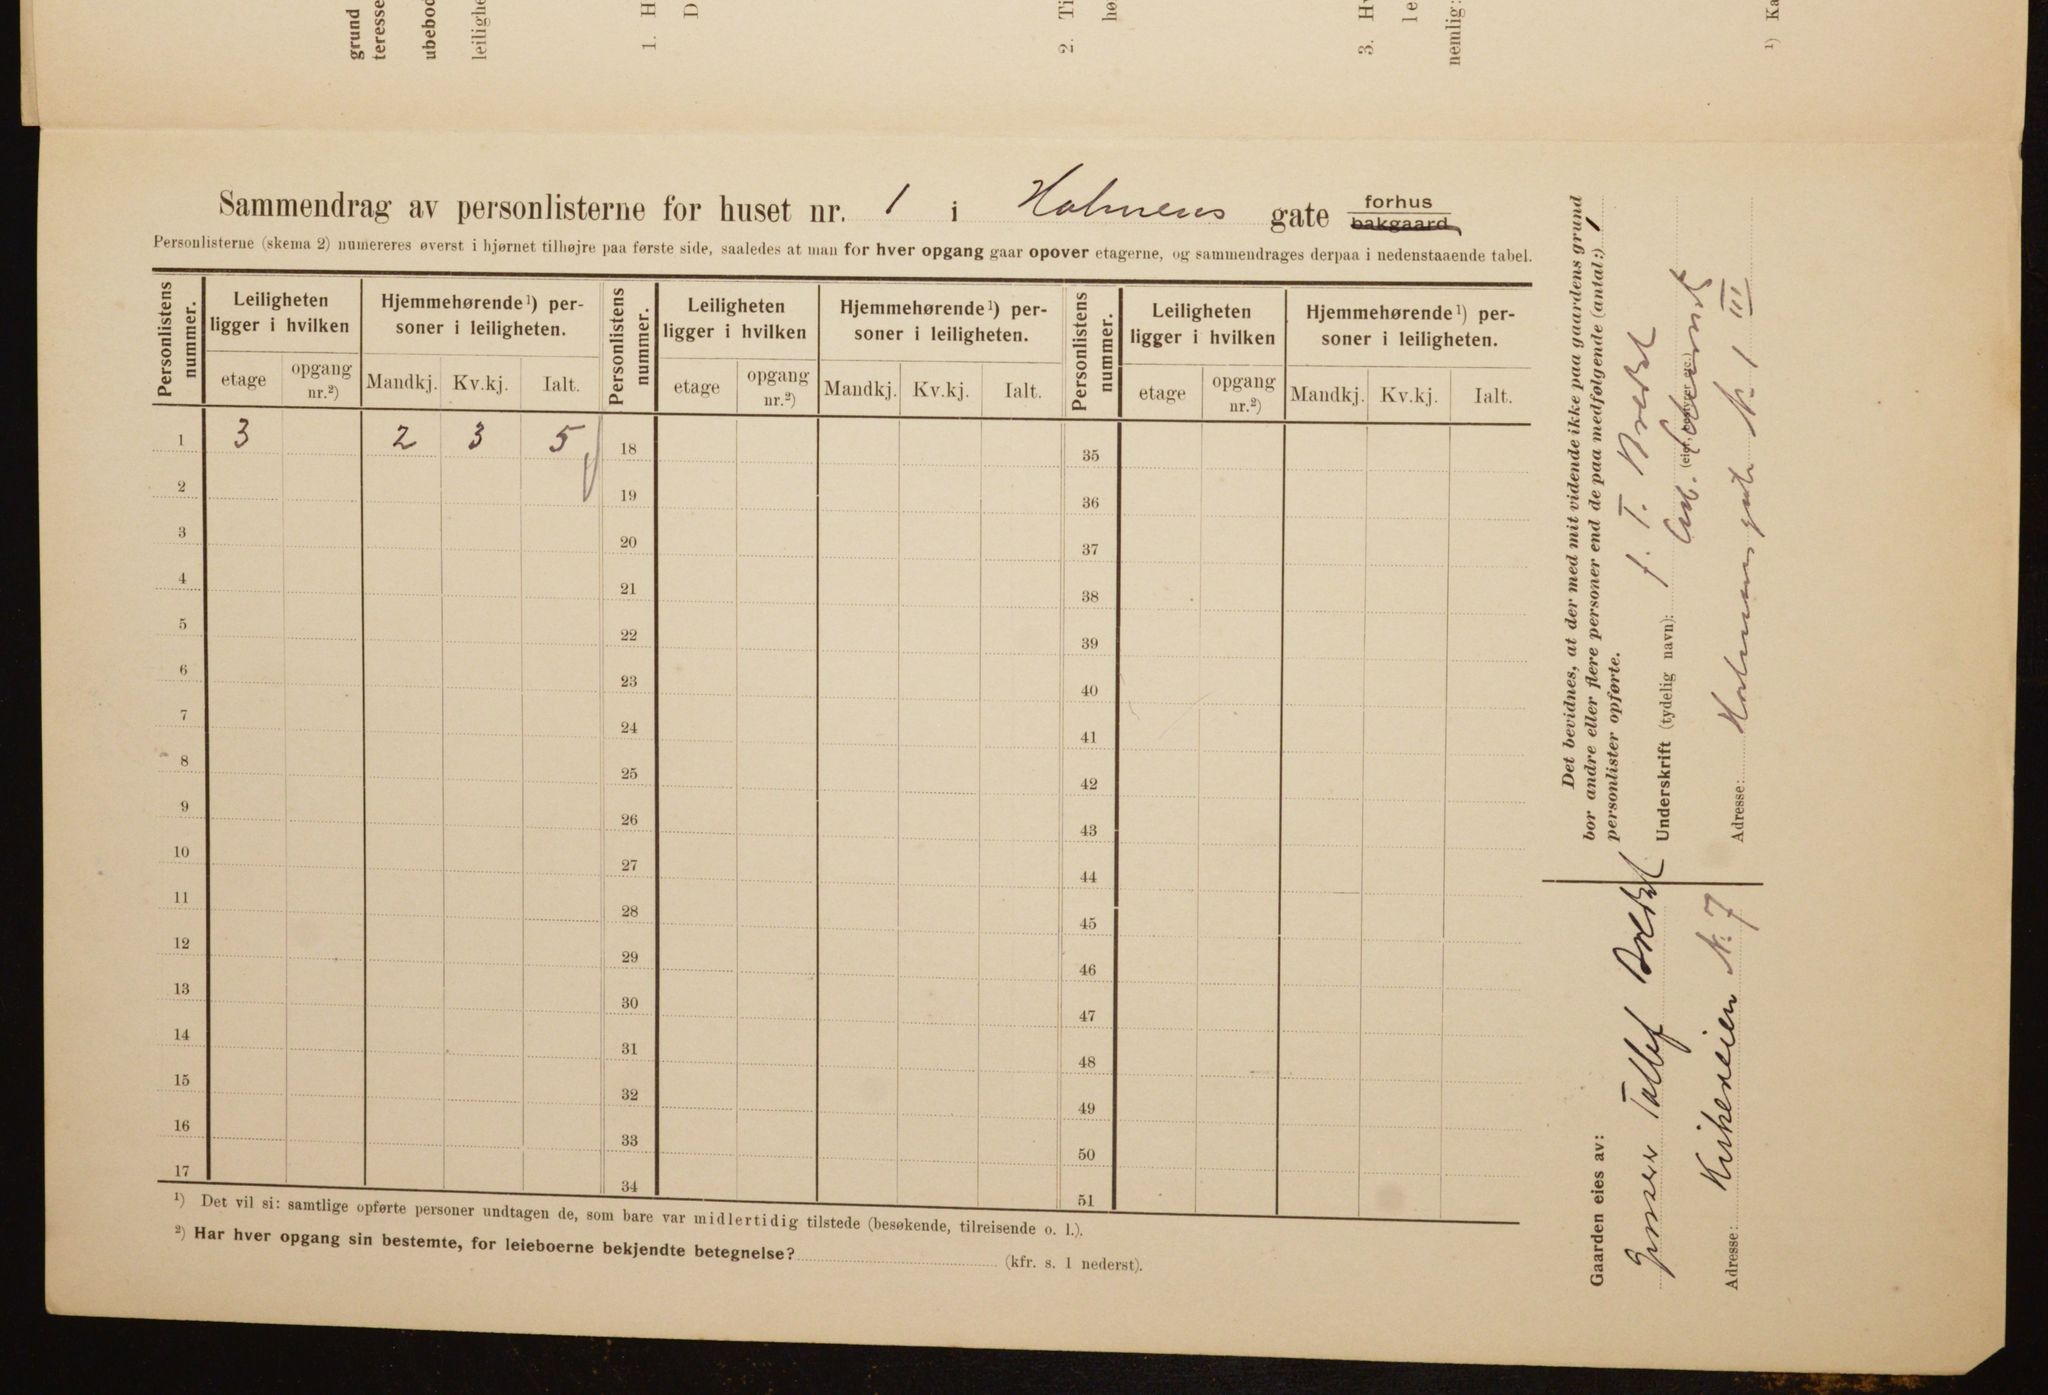 grund
teresse
ubebod
leilighe
1. H
D
2. Ti
hø
3. Hv
le
nemlig:
¹) Ka
Sammendrag av personlisterne for huset nr. 1 i Holmens gate forhus
bakgaard
Personlisterne (skema 2) numereres øverst i hjørnet tilhøjre paa første side, saaledes at man for hver opgang gaar opover etagerne, og sammendrages derpaa i nedenstaaende tabel.
Personlistens nummer. Leiligheten ligger i hvilken Hjemmehørende¹) personer i leiligheten. Personlistens nummer. Leiligheten ligger i hvilken Hjemmehørende¹) personer i leiligheten. Personlistens nummer. Leiligheten ligger i hvilken Hjemmehørende¹) personer i leiligheten.
etage opgang nr.²) Mandkj. Kv.kj. Ialt. etage opgang nr.²) Mandkj. Kv.kj. Ialt. etage opgang nr.²) Mandkj. Kv.kj. Ialt.
1 3 2 3 5 18 35
2 19 36
3 20 37
4 21 38
5 22 39
6 23 40
7 24 41
8 25 42
9 26 43
10 27 44
11 28 45
12 29 46
13 30 47
14 31 48
15 32 49
16 33 50
17 34 51
¹) Det vil si: samtlige opførte personer undtagen de, som bare var midlertidig tilstede (besøkende, tilreisende o. l.).
²) Har hver opgang sin bestemte, for leieboerne bekjendte betegnelse? (kfr. s. 1 nederst).
Det bevidnes, at der med mit vidende ikke paa gaardens grund
bor andre eller flere personer end de paa medfølgende (antal:) 1
personlister opførte.
f. T. Bredst
Underskrift (tydelig navn):
(eier, bestyrer etc.)
Adresse: Holmens gate Nr. 1 III
Gaarden eies av:
Jenser
Adresse: Kirkeveien Nr. 7